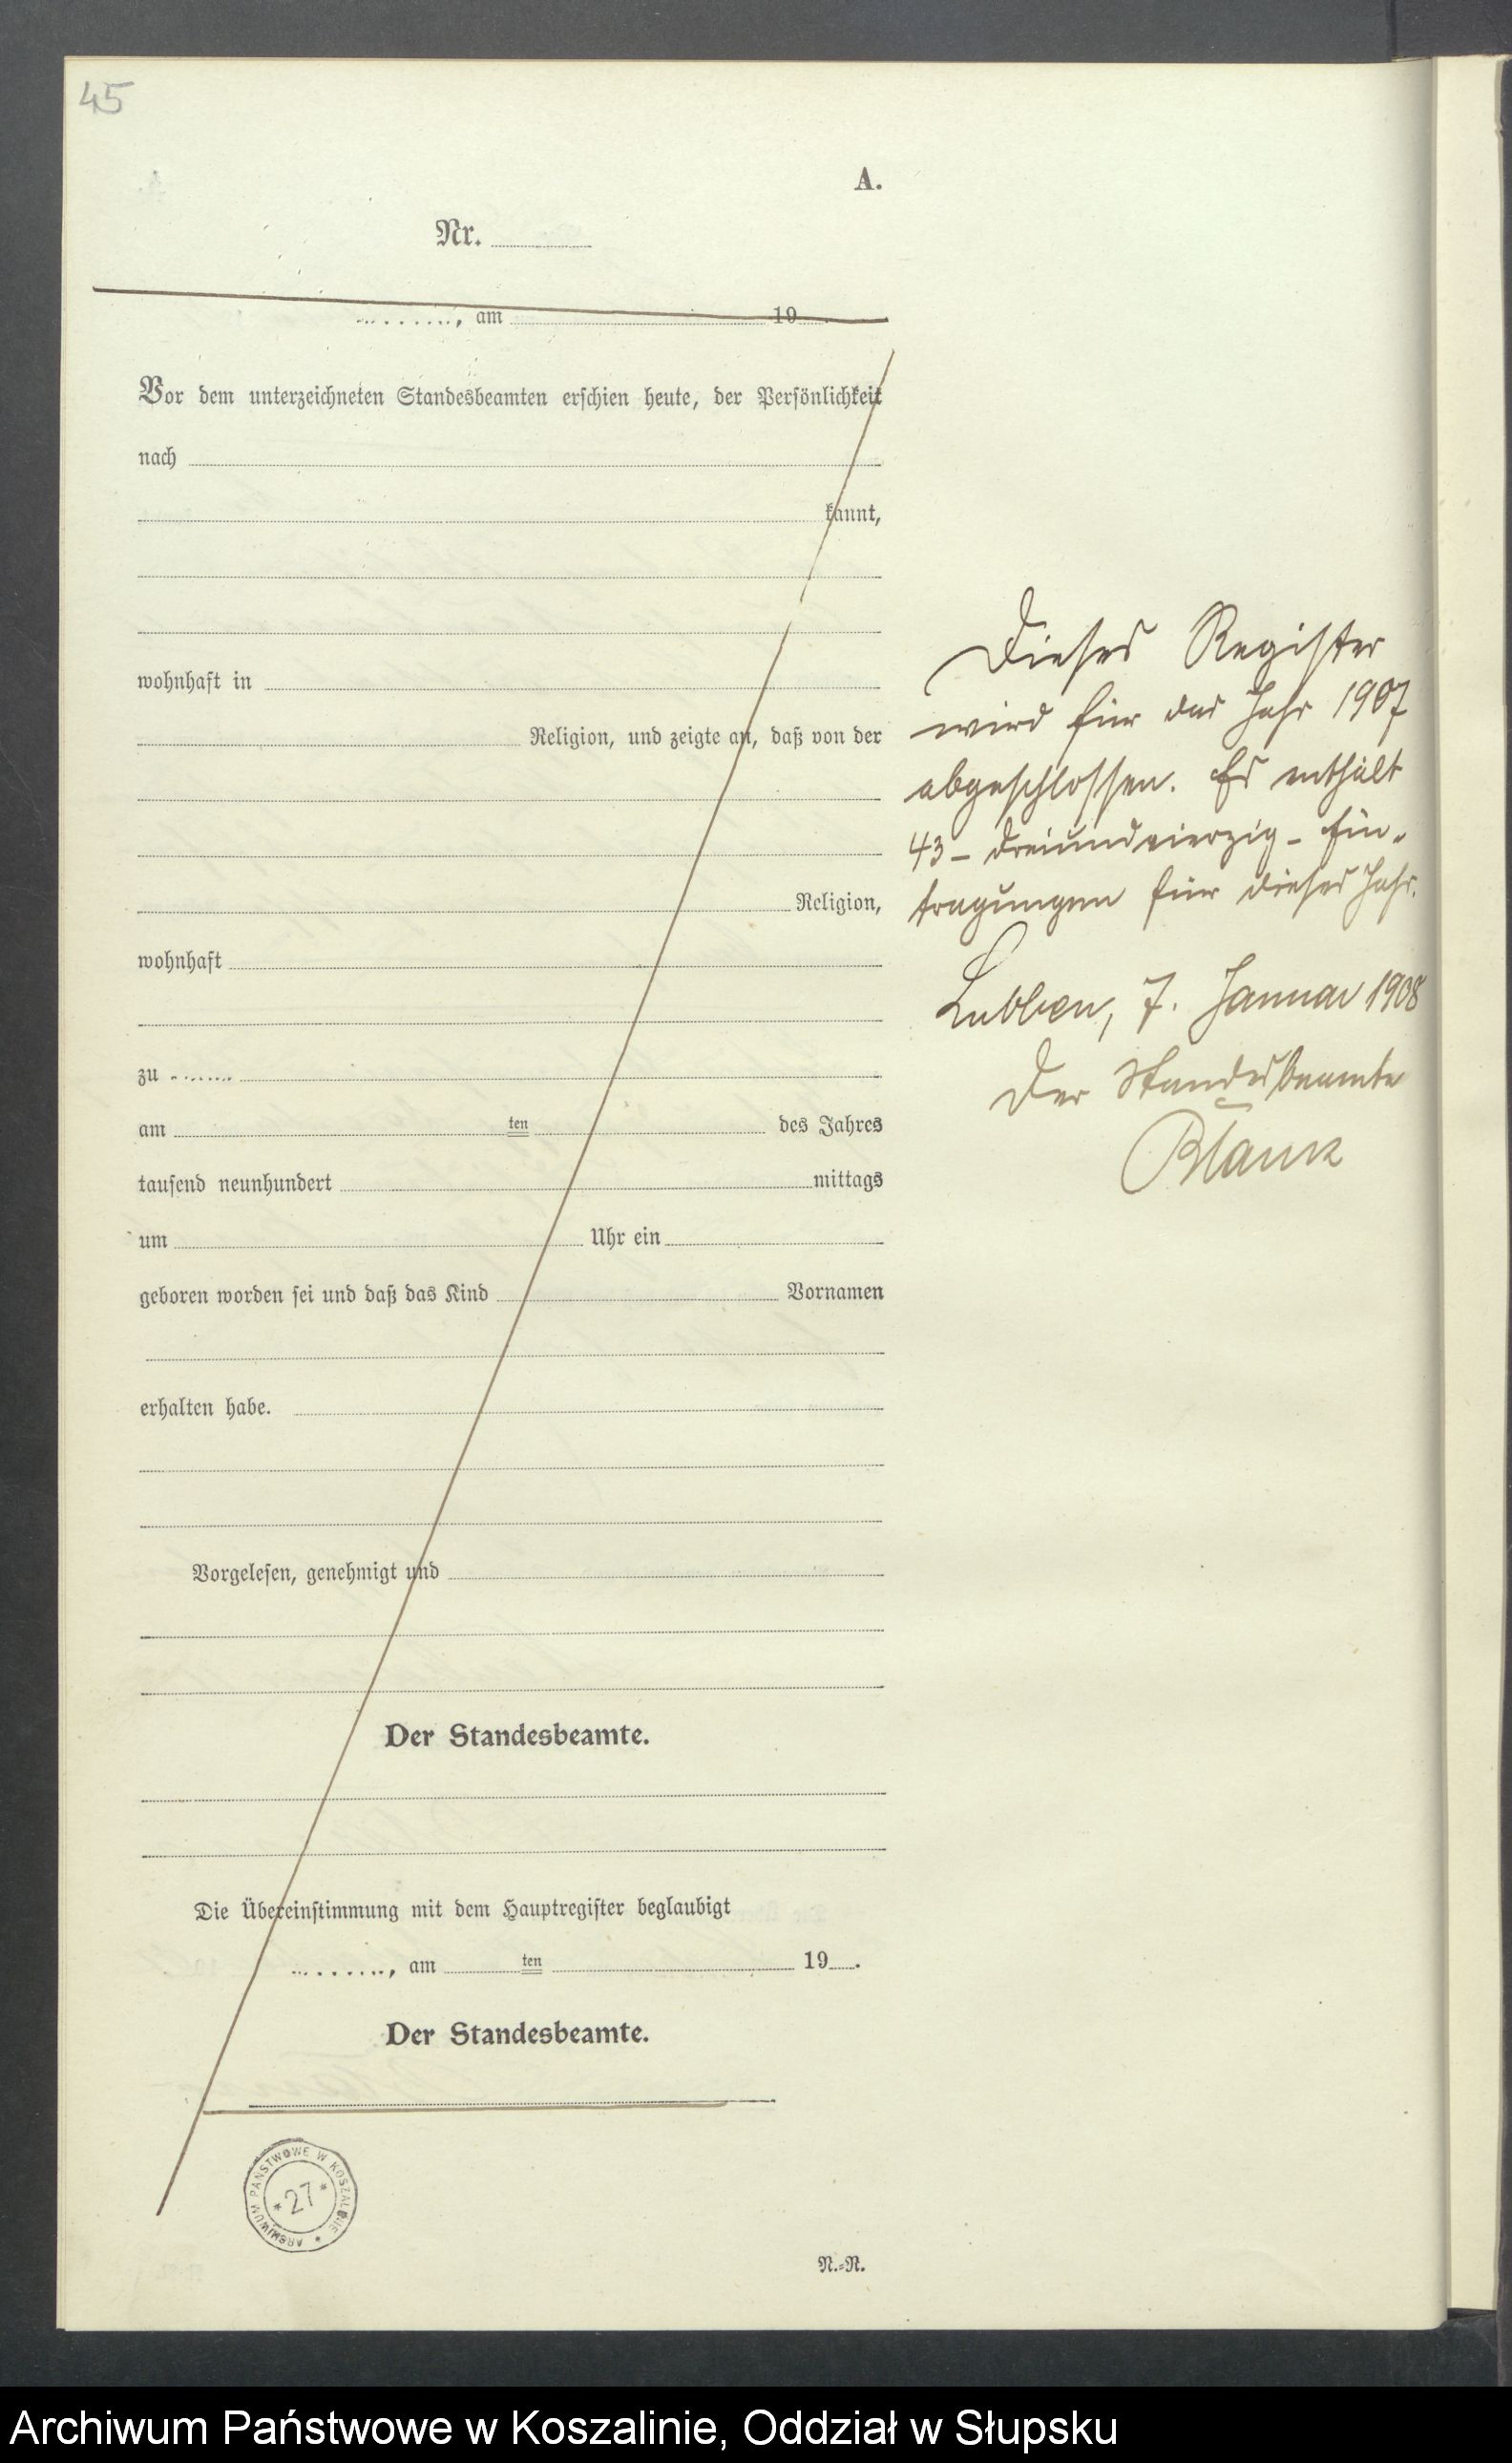 45
A.
Nr.
, am 19 .
Vor dem unterzeichneten Standesbeamten erschien heute, der Persönlichkeit
nach
kannt,
wohnhaft in
Religion, und zeigte an, daß von der
Religion,
wohnhaft
zu
am ten des Jahres
tausend neunhundert mittags
um Uhr ein
geboren worden sei und daß das Kind Vornamen
erhalten habe.
Vorgelesen, genehmigt und
Der Standesbeamte.
Die Übereinstimmung mit dem Hauptregister beglaubigt
, am ten 19 .
Der Standesbeamte.
ARCHIWUM PAŃSTWOWE W KOSZALINIE *
* 27 *
N.=N.
Dieses Register
wird für das Jahr 1907
abgeschlossen. Es enthält
43 - dreiundvierzig - Ein-
tragungen für dieses Jahr.
Lubben, 7. Januar 1908
Der Standesbeamte
Blank
Archiwum Państwowe w Koszalinie, Oddział w Słupsku